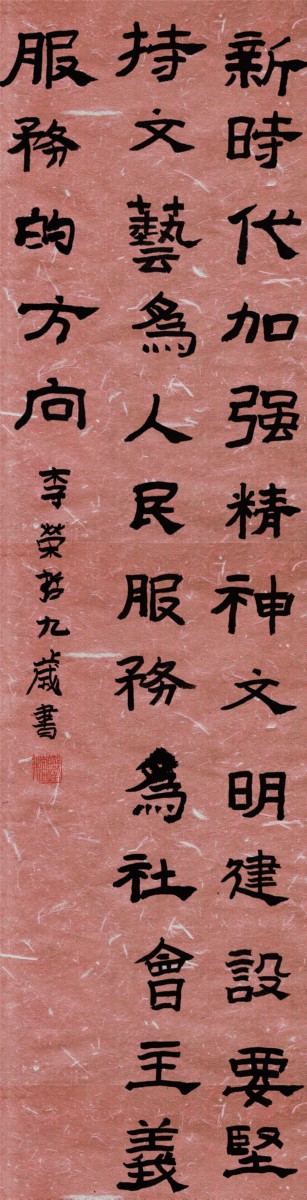 新時代加强精神文明建設要堅
持文藝爲人民服務爲社會主義
服務的方向
李榮哲九歲書